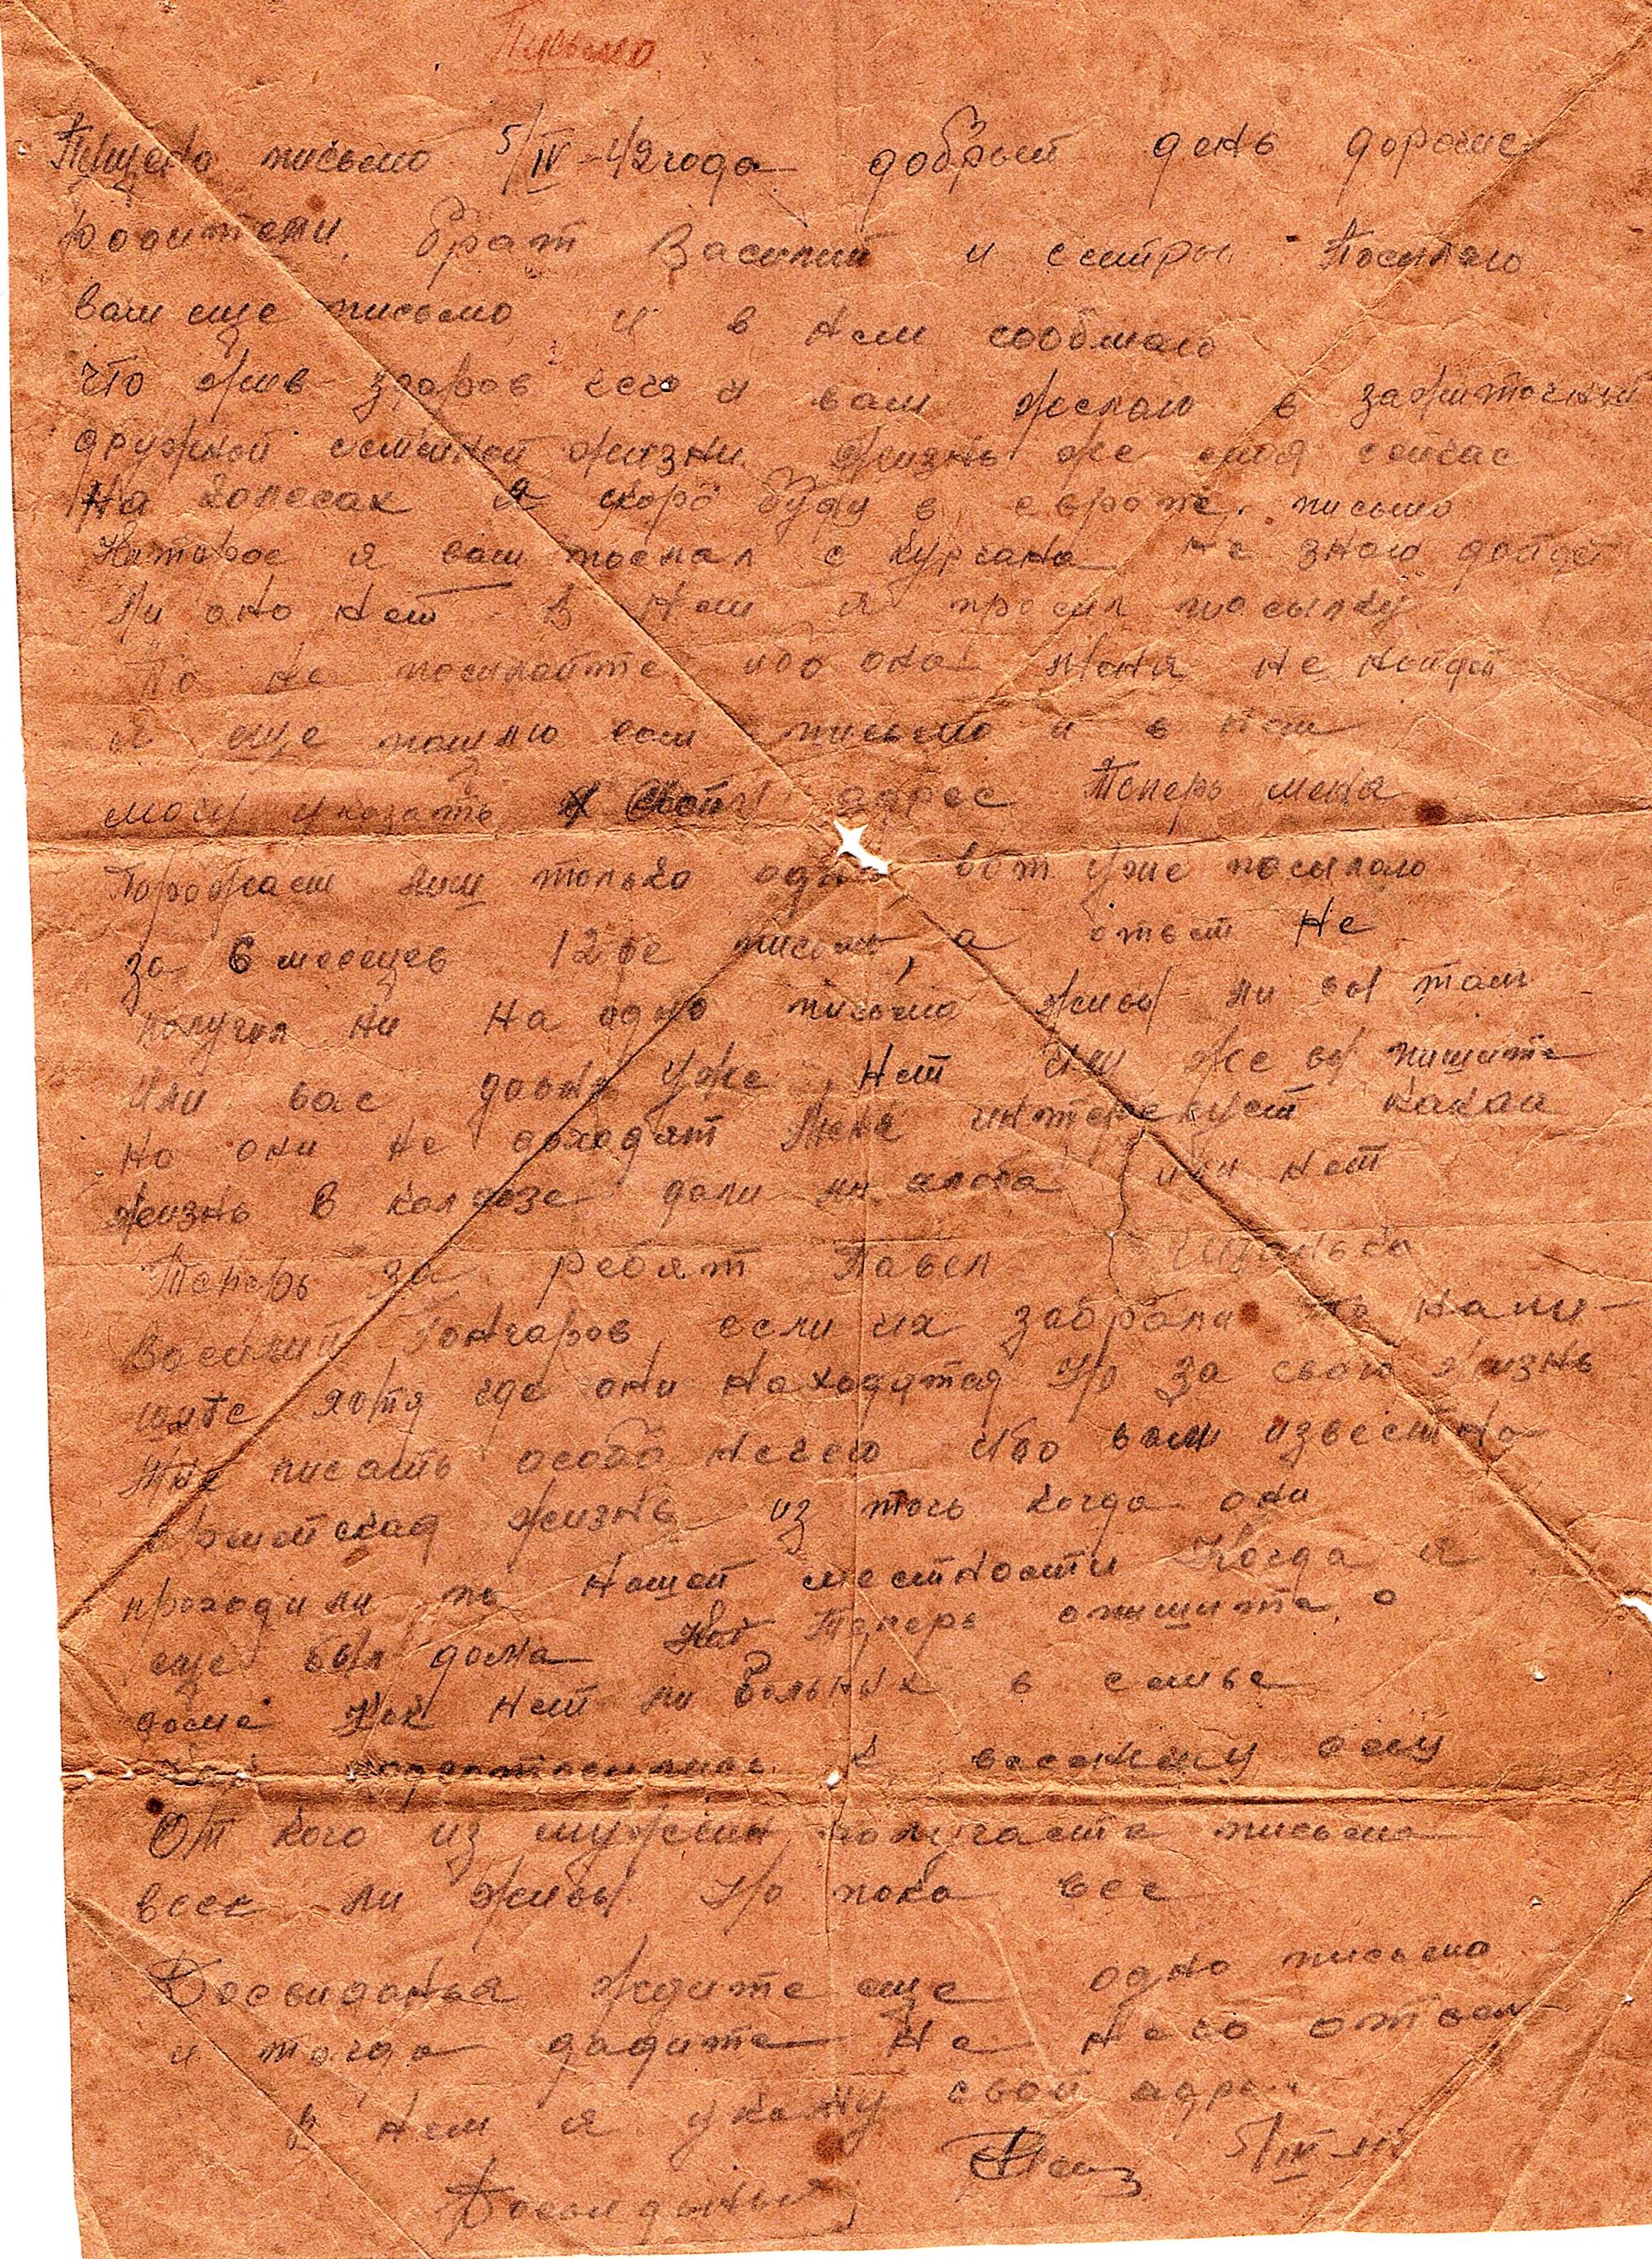 Письмо
Пущено письмо 5/IV-42 года добрый день дорогие
родители, брат Василий и сестры Посылаю
вам еще письмо и в нем сообщаю
что жив здоров чего и вам желаю в зажиточной
дружной семейной жизни. Жизнь же моя сейчас
На колесах я скоро буду в европе. письмо
Которое я вам послал с Кургана не знаю дойдет
Ли оно нет В нем я просил посылку
То не посылайте ибо она меня не найдет
я еще пошлю вам письмо и в нем
могу указать свой адрес Теперь меня
Поражает лиш только одно вот уже посылаю
за 6 месецев 12ое письмо, а ответ не
получил ни на одно письмо живы ли вы там
или вас давно уже нет или же вы пишите
но они не доходят Меня интересует какая
жизнь в колхозе дали ли хлеба или нет
Теперь за ребят Павел
Василий Гончаров если их забрали то напи-
шите хотя где они находятся Ну за свою жизнь
Мне писать особо нечего ибо вам известно
Армейская жизнь из того когда они
проходили по нашей местности Когда я
еще был дома Теперь опишите о
доме как нет ли больных в семье
к весеннему севу
От кого из мужчин получаете письма
все ли живы Ну пока все
Досвиданья ждите еще одно письмо
и тогда дадите на него ответ
В нем я укажу свой адрес
5/IV-42
Досвиданья